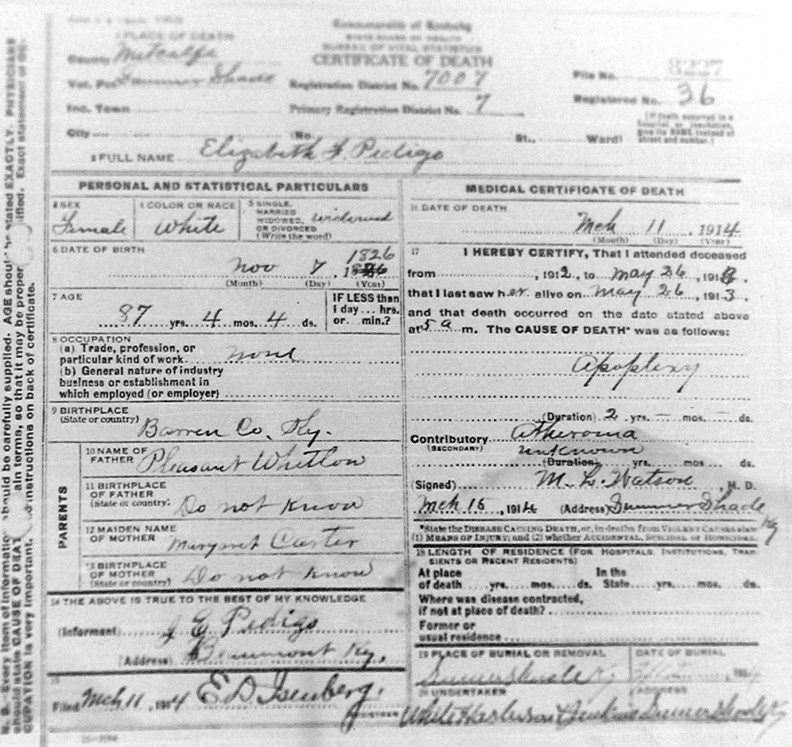 Commonwealth of Kentucky
STATE BOARD OF HEALTH
BUREAU OF VITAL STATISTICS
CERTIFICATE OF DEATH
1 PLACE OF DEATH
County Metcalfe
Vot. Pct Summer Shade
Inc. Town
City (No. St., Ward)
Registration District No. 7007
Primary Registration District No. 7
File No. 8227
Registered No. 36
(If death occurred in a hospital or institution, give its NAME instead of street and number.)
2 FULL NAME Elizabeth F. Pedigo
PERSONAL AND STATISTICAL PARTICULARS
3 SEX Female
4 COLOR OR RACE White
5 SINGLE, MARRIED WIDOWED, OR DIVORCED (Write the word) widowed
6 DATE OF BIRTH
Nov 7, 1826
(Month) (Day) (Year)
7 AGE
87 yrs. 4 mos. 4 ds.
IF LESS than 1 day... hrs. or... min.?
8 OCCUPATION
(a) Trade, profession, or particular kind of work none
(b) General nature of industry
business or establishment in
which employed (or employer)
9 BIRTHPLACE
(State or country)
Barren Co. Ky.
PARENTS
10 NAME OF FATHER Pleasant Whitlow
11 BIRTHPLACE OF FATHER (State or country) Do not know
12 MAIDEN NAME OF MOTHER Margaret Carter
13 BIRTHPLACE OF MOTHER (State or country) Do not know
14 THE ABOVE IS TRUE TO THE BEST OF MY KNOWLEDGE
(Informant) J E Pedigo
(Address) Beaumont Ky.
15
Filed Mch 11, 1914 E D Isenberg.
MEDICAL CERTIFICATE OF DEATH
16 DATE OF DEATH
Mch 11 1914
(Month) (Day) (Year)
17 I HEREBY CERTIFY, That I attended deceased
from , 1912, to May 26, 1913
that I last saw her alive on May 26, 1913,
and that death occurred on the date stated above
at 5 a m. The CAUSE OF DEATH* was as follows:
Apoplexy
(Duration) 2 yrs. – mos. – ds.
Contributory Atheroma
(SECONDARY) unknown
(Duration) yrs. mos. ds.
(Signed) M. L. Watson, M. D.
Mch 15, 1914 (Address) Summer Shade Ky
*State the DISEASE CAUSING DEATH, or, in deaths from VIOLENT CAUSES state
(1) MEANS OF INJURY; and (2) whether ACCIDENTAL, SUICIDAL or HOMICIDAL.
18 LENGTH OF RESIDENCE (FOR HOSPITALS, INSTITUTIONS, TRANSIENTS OR RECENT RESIDENTS)
At place of death yrs. mos. ds. In the State yrs. mos. ds.
Where was disease contracted,
if not at place of death?
Former or
usual residence
19 PLACE OF BURIAL OR REMOVAL DATE OF BURIAL
Summer Shade Ky 1914
20 UNDERTAKER ADDRESS
Jenkins Summer Shade Ky